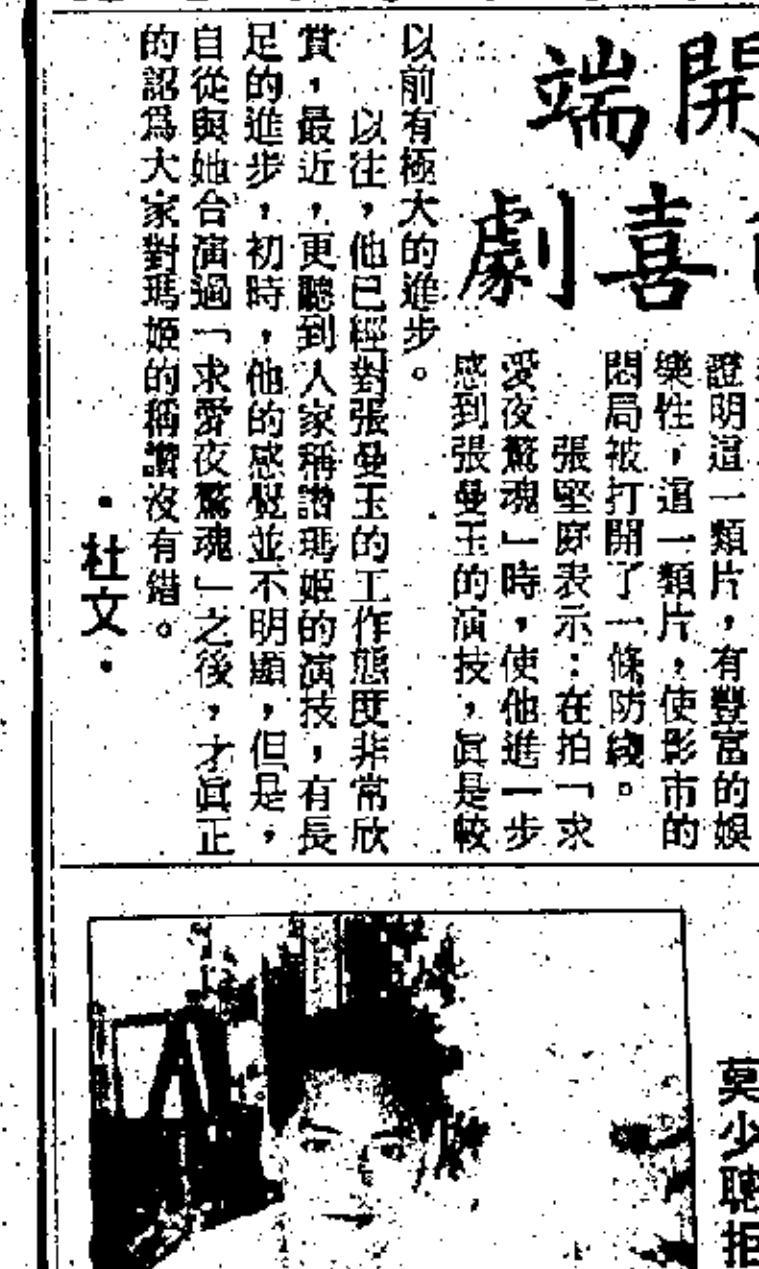 開
端
喜
劇
證明這一類片，有豐富的娛
樂性，這一類片，使影市的
悶局被打開了一條防綫。
張堅庭表示：在拍「求
愛夜驚魂」時，使他進一步
感到張曼玉的演技，眞是較
以前有極大的進步。
以往，他已經對張曼玉的工作態度非常欣
賞，最近，更聽到人家稱讚瑪姬的演技，有長
足的進步，初時，他的感覺並不明顯，但是，
自從與她合演過「求愛夜驚魂」之後，才眞正
的認爲大家對瑪姬的稱讚沒有錯。
・杜文・
莫少聰拒